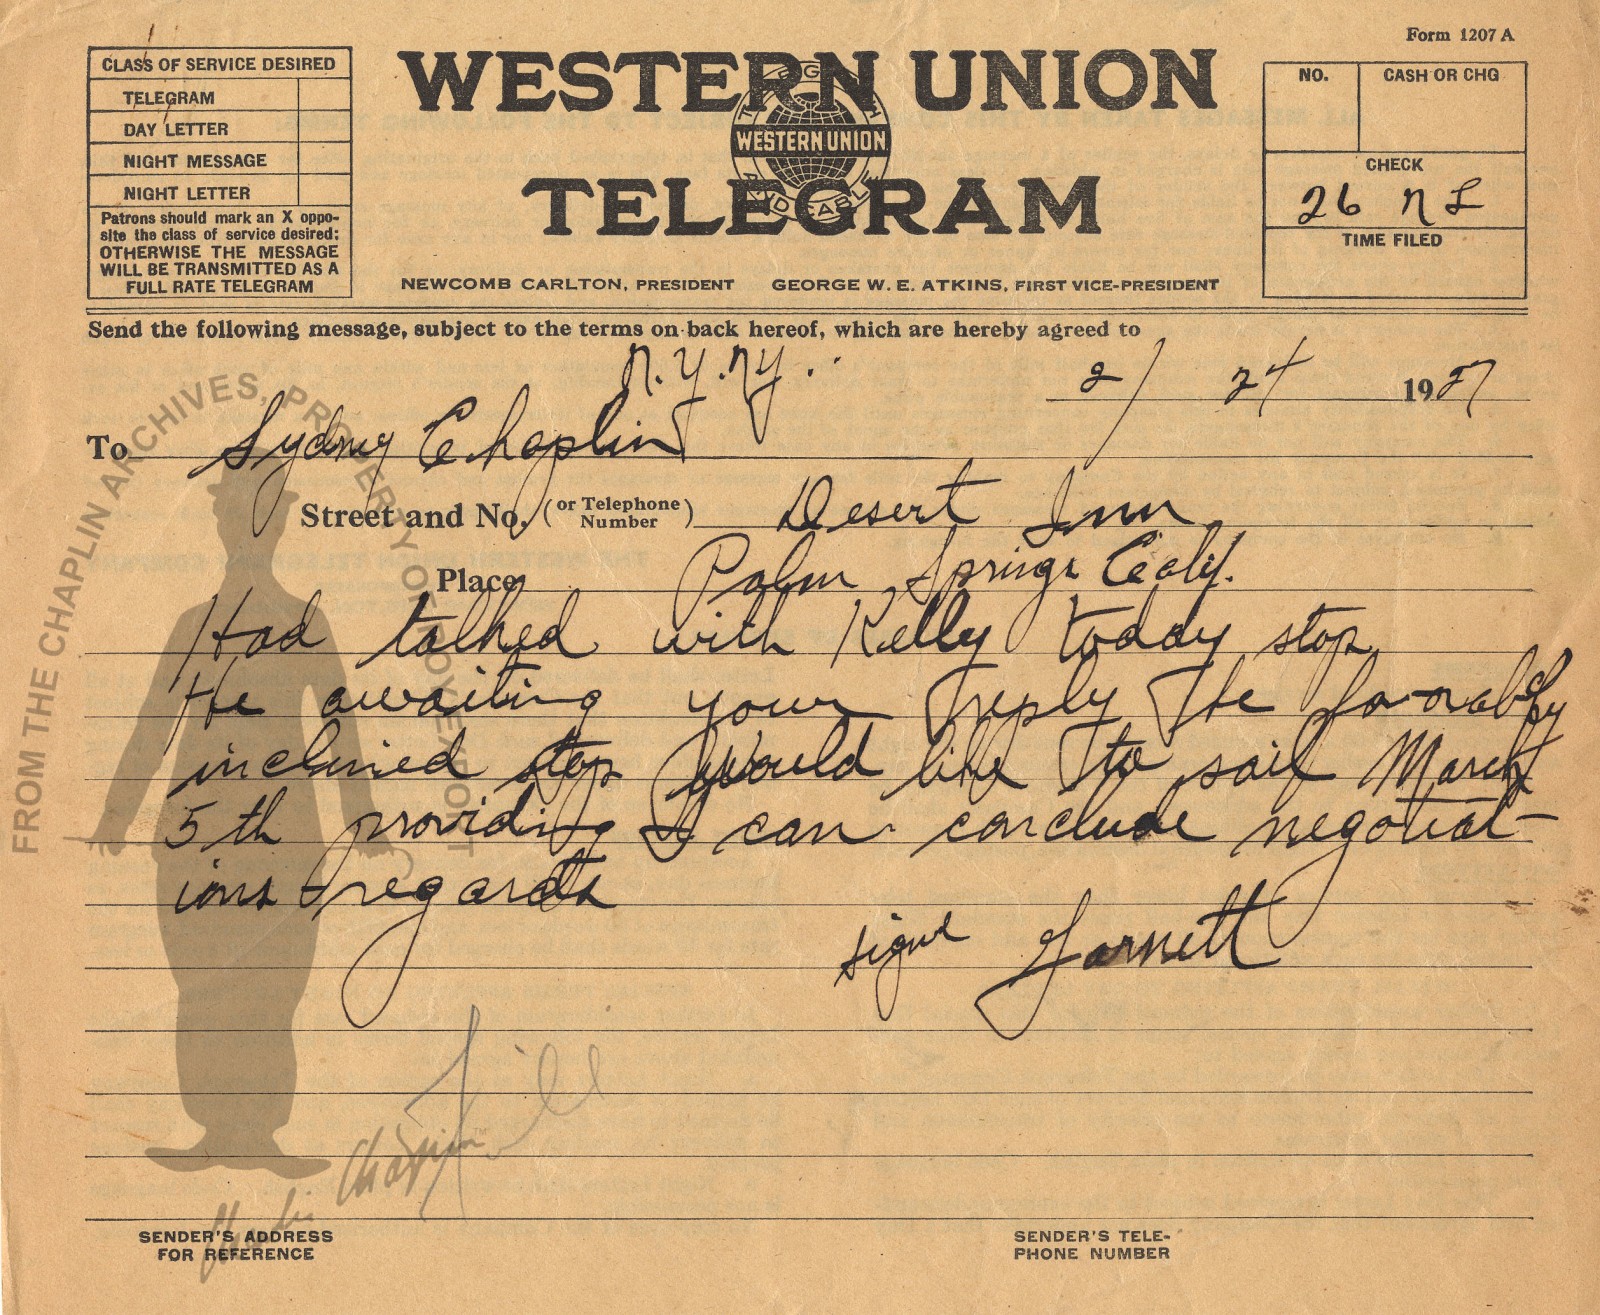 Form 1207 A
CLASS OF SERVICE DESIRED
TELEGRAM
DAY LETTER
NIGHT MESSAGE
NIGHT LETTER
Patrons should mark an X oppo-
site the class of service desired:
OTHERWISE THE MESSAGE
WILL BE TRANSMITTED AS A
FULL RATE TELEGRAM
WESTERN UNION
WESTERN UNION
TELEGRAM
NEWCOMB CARLTON, PRESIDENT GEORGE W. E. ATKINS, FIRST VICE-PRESIDENT
NO. CASH OR CHG
CHECK
26 NL
TIME FILED
Send the following message, subject to the terms on back hereof, which are hereby agreed to
N.Y. NY. 2/ 24 1927
To Sydney Chaplin
Street and No. (or Telephone Number) Desert Inn
Place Palm Springs Calif.
Had talked with Kelly today stop
He awaiting your reply He favorably
inclined stop would like to sail March
5th providing I can conclude negotiat-
ions - regards
Garnett
FROM THE CHAPLIN ARCHIVES, PROPERTY OF ROY EXPORT
Charlie Chaplin
SENDER'S ADDRESS
FOR REFERENCE
SENDER'S TELE-
PHONE NUMBER